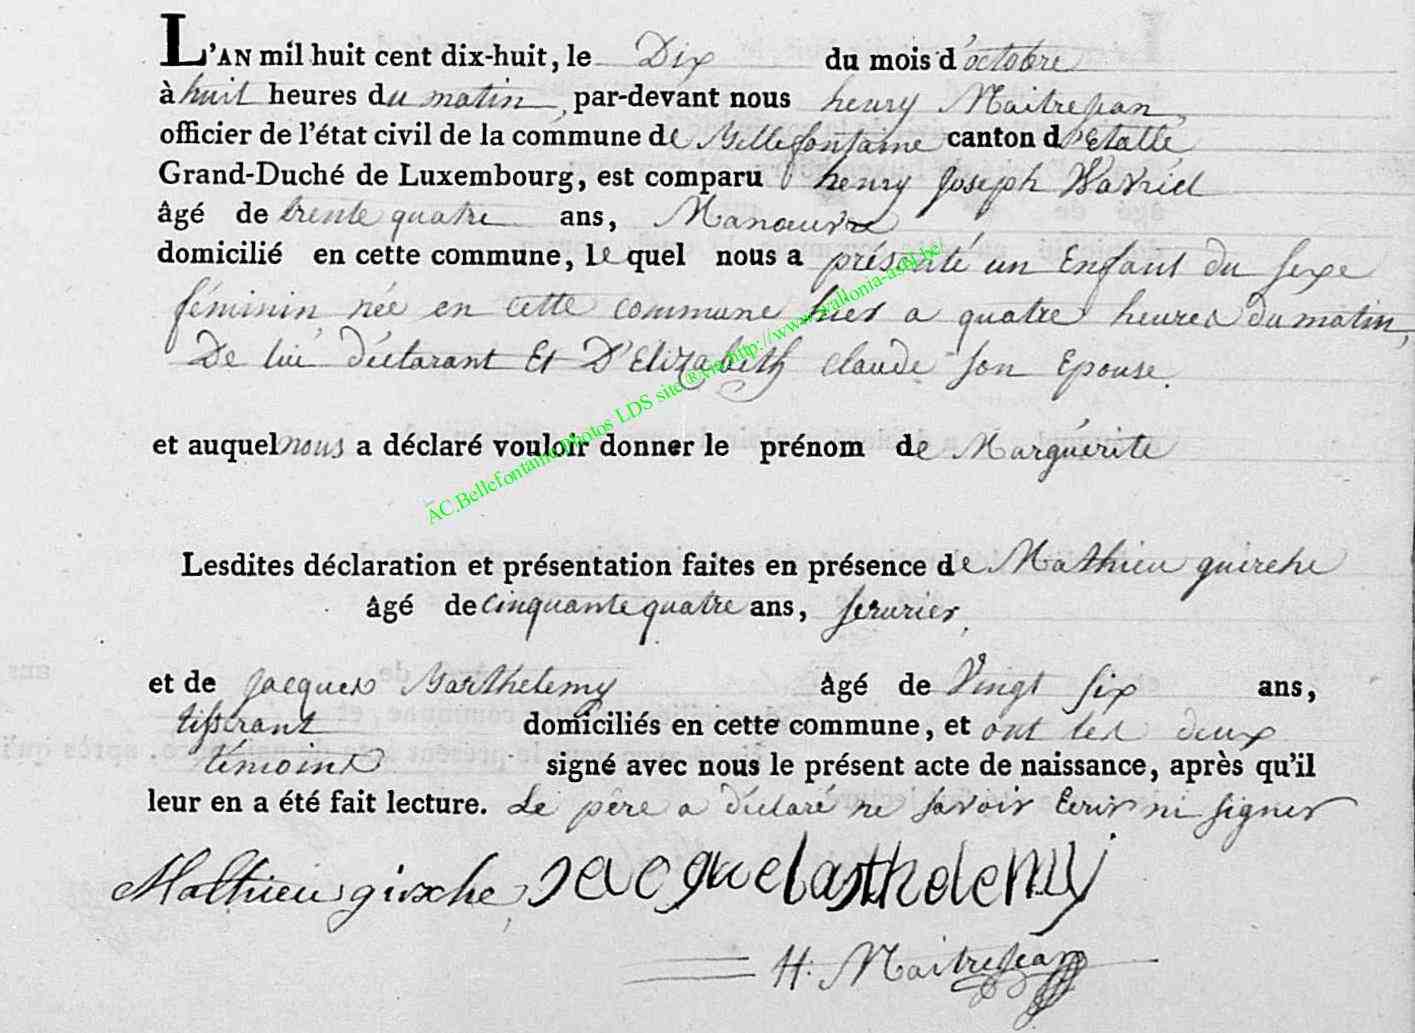 L'AN mil huit cent dix-huit, le Dix du mois d'octobre
à huit heures du matin, par-devant nous henry Maitrejean,
officier de l'état civil de la commune de Bellefontaine canton d'Etalle
Grand-Duché de Luxembourg, est comparu henry Joseph
âgé de trente quatre ans, Manoeuvre
domicilié en cette commune, le quel nous a présenté un Enfant du sexe
féminin, née en cette commune hier a quatre heures du matin,
De lui déclarant Et D'Elizabeth claude son Epouse.
et auquel nous a déclaré vouloir donner le prénom de Marguérite
Lesdites déclaration et présentation faites en présence de Mathieu guirche
âgé de cinquante quatre ans, serurier,
et de Jacques Barthelemy âgé de Vingt six ans,
tisserant domiciliés en cette commune, et ont les deux
témoins signé avec nous le présent acte de naissance, après qu'il
leur en a été fait lecture. Le père a déclaré ne savoir Ecrir ni signer
Mathieu girsche, Jacque barthelemy
H. Maitrejean
AC.Bellefontaine photos LDS site®via http://www.wallonia-asbl.be/